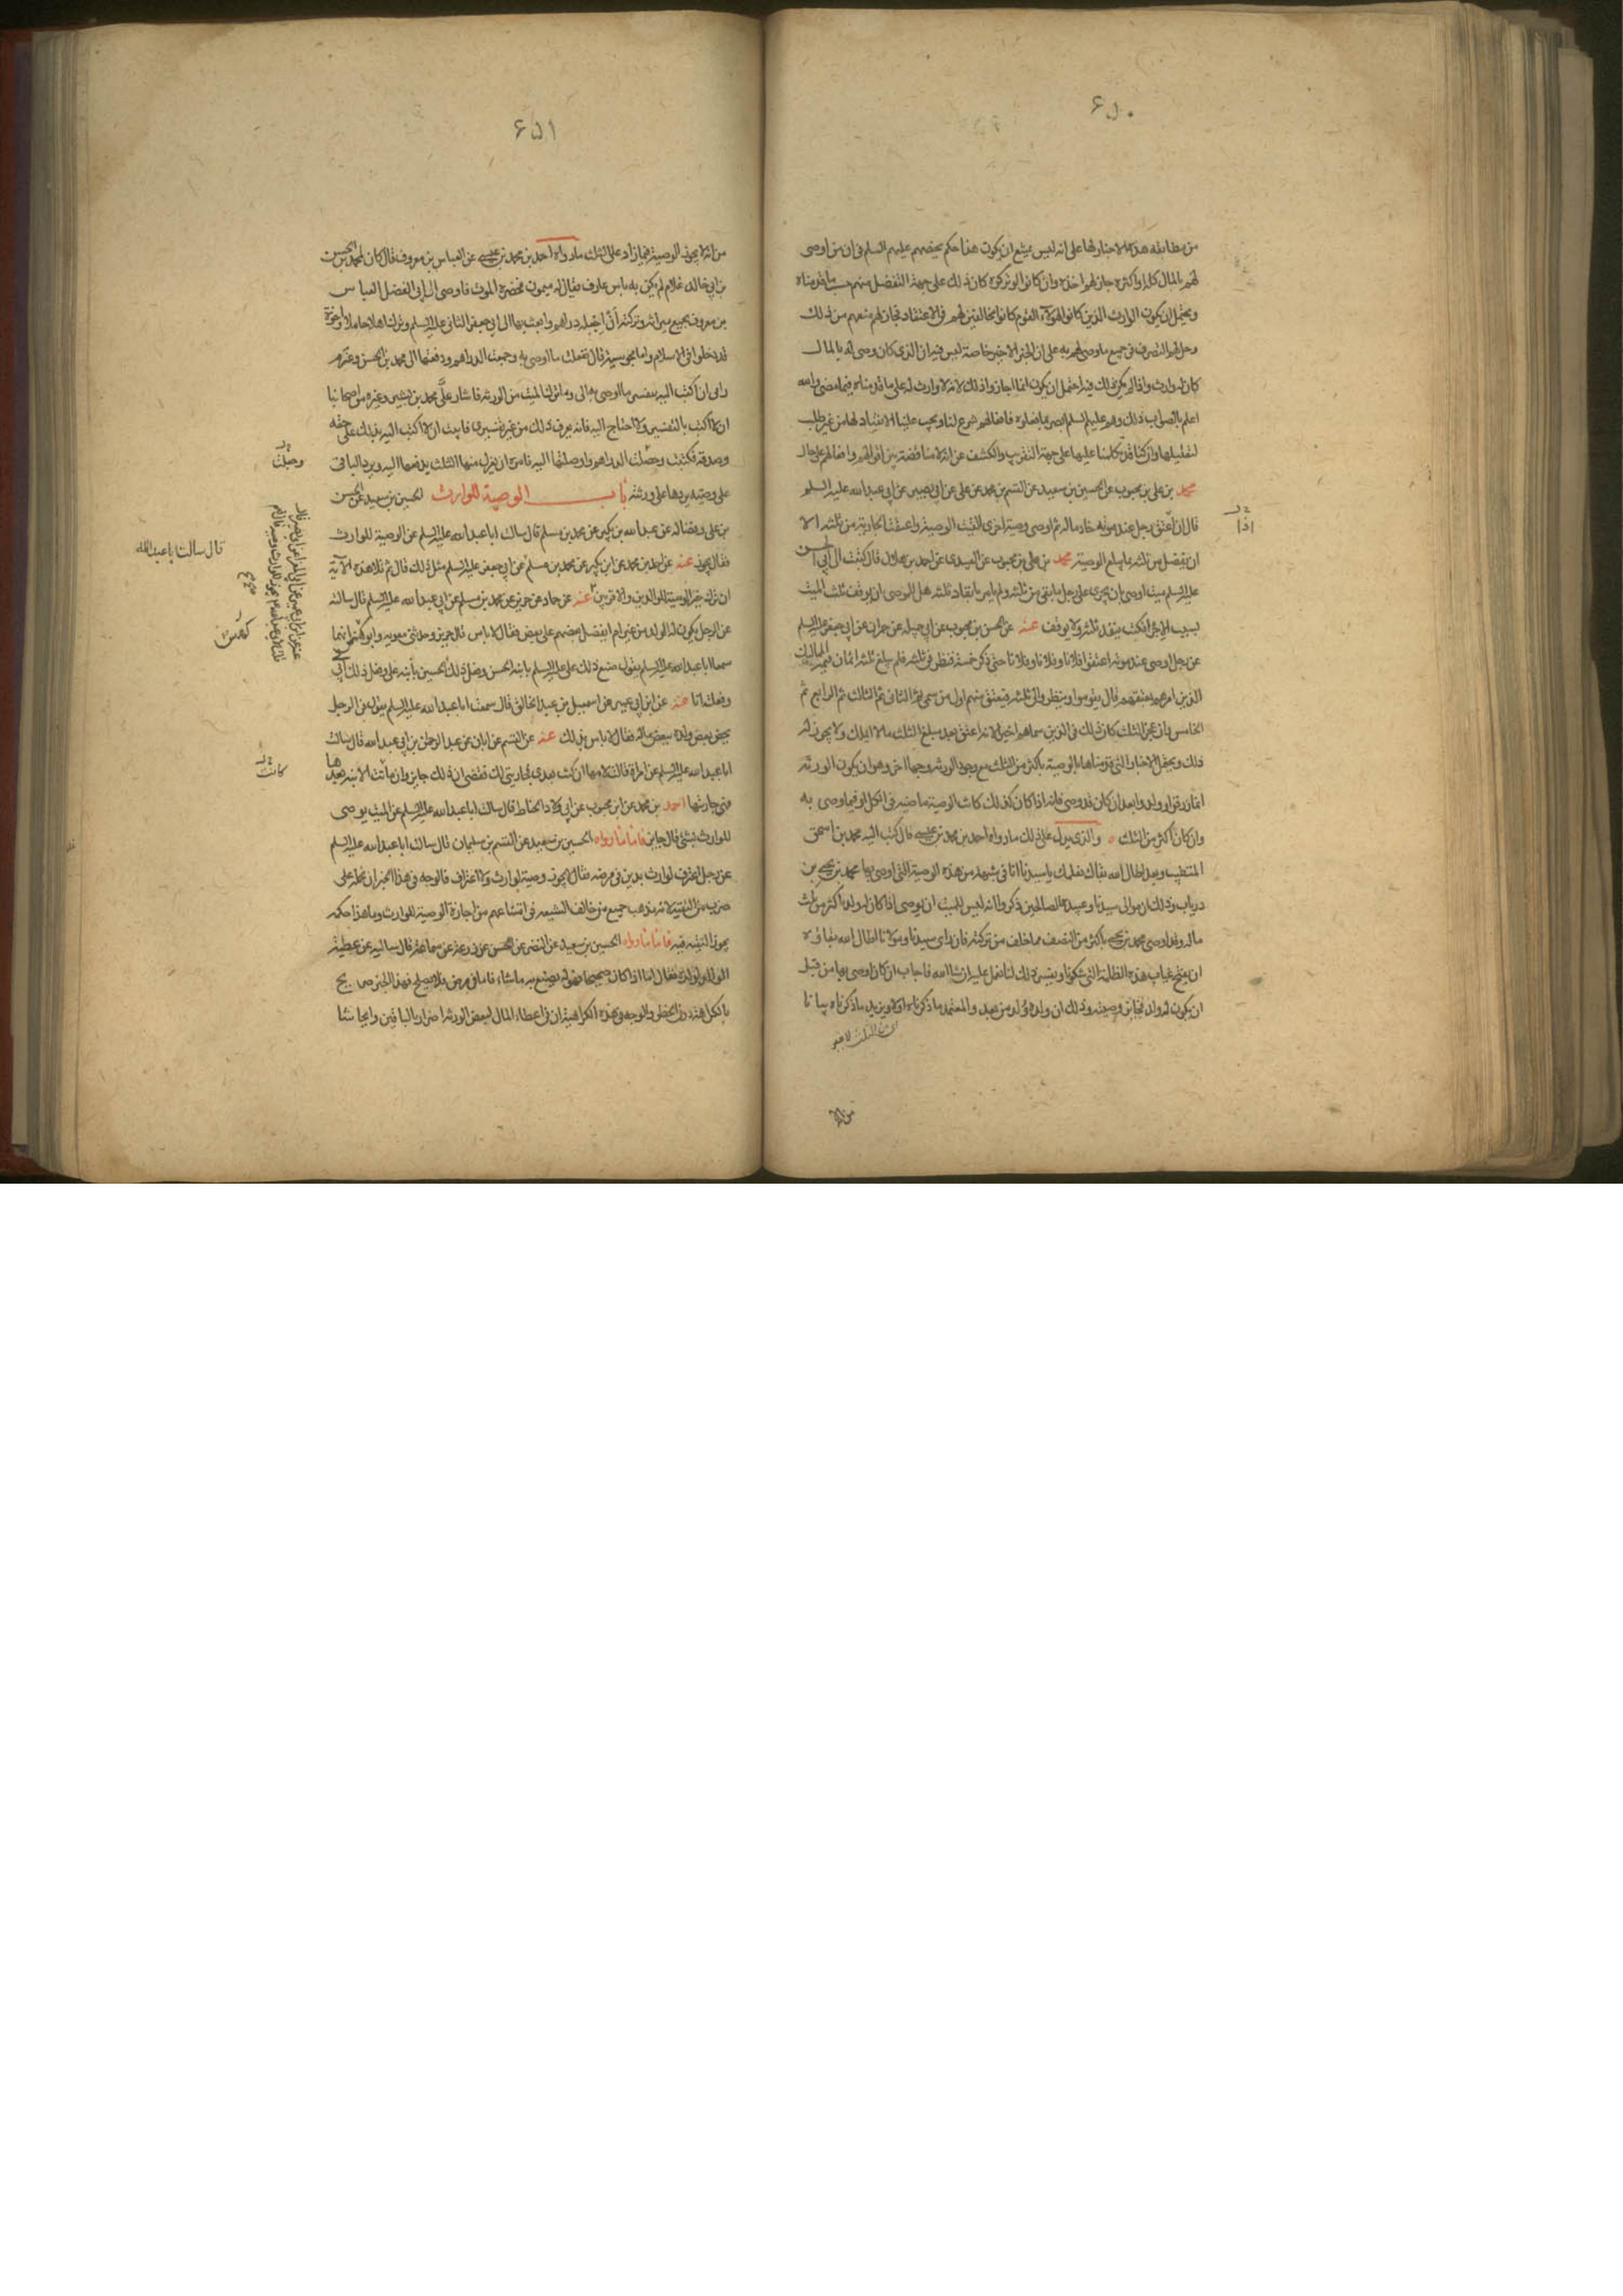 ۶۵۰
من مطابقه هذه الاخبار لها على انه ليس يمتنع ان يكون هذا حكم يخصهم عليهم السلم فى ان من اوصى
لهم بالمال كله او اكثره جاز لهم اخذه وان كانوا لو تركوه كان ذلك على جهة التفضل منهم حسب ما قدمناه
ويحتمل ان يكون الوارث الذين كانوا لهؤلاء القوم كانوا مخالفين لهم فى الاعتقاد فجاز لهم منعهم من ذلك
وحل لهم التصرف فى جميع ما وصى لهم به على ان الخبر الاخير خاصة ليس فيه ان الذى كان وصى له بالمال
كان له وارث واذا لم يكن ذلك فيه احتمل ان يكون انما اجاز واذلك لانه لا وارث له على ما قدمناه فيما مضى والله
اعلم بالصواب ذلك وهم عليهم السلم ابصر بما فعلوه فافعالهم شرع لنا ويجب علينا الانقياد لها من غير طلب
لتعليلها وان كنا قد تكلمنا عليها على جهة التقرب والكشف عن انه لا مناقضة بين اقوالهم وافعالهم على حال
محمد بن على بن محبوب عن الحسين بن سعيد عن القسم بن محمد عن على عن ابى بصير عن ابى عبد الله عليه السلم
قال ان اعتق رجل عند موته خادما له ثم اوصى بوصية اخرى القيت الوصية واعتقت الجارية من ثلثه الا
ان يفضل من ثلثه ما يبلغ الوصية محمد بن على بن محبوب عن العبيدى عن احمد بن هلال قال كتبت الى ابى الحسن
عليه السلم ميت اوصى بان يجرى على رجل ما بقى من ثلثه ولم يامر بانفاذ ثلثه هل للوصى ان يوقف ثلث الميت
بسبب الاجراء فكتب ينفذ ثلثه ولا يوقف عنه عن الحسن بن محبوب عن ابى جميله عن حمران عن ابى جعفر عليه السلم
عن رجل اوصى عند موته اعتقوا فلانا وفلانا وفلانا حتى ذكر خمسة فنظر فى ثلثه فلم يبلغ ثلثه اثمان قيمة المماليك
الذين امرهم بعتقهم قال يقوموا وينظر الى ثلثه فيعتق منهم اول من سمى ثم الثانى ثم الثالث ثم الرابع ثم
الخامس وان عجز الثلث كان ذلك فى الذين سماهم اخيرا لانه اعتق بعد مبلغ الثلث ما لا يملك ولا يجوز له
ذلك ويحتمل الاخبار التى قدمناها بالوصية باكثر من الثلث مع وجود الورثه وجها اخر وهو ان يكون الورثه
وان كان اكثر من الثلث والذى يدل على ذلك ما رواه احمد بن محمد بن عيسى قال كتب اليه محمد بن اسحق
المتطبب وبعد اطال الله بقاك نعلمك يا سيدنا انا فى شبهة من هذه الوصية التى اوصى بها محمد بن يحيى بن
درياب وذلك ان موالى سيدنا وعبيده الصالحين ذكروا انه ليس للميت ان يوصى اذا كان له ولد باكثر من ثلث
ماله وقد اوصى محمد بن يحيى باكثر من النصف مما خلف من تركته فان راى سيدنا ومولانا اطال الله بقاؤه
ان يفتح غياب هذه الظلمة التى شكونا ويفسر ذلك لنا نعمل عليه ان شا الله فاجاب ان كان اوصى بها من قبل
ان يكون له ولد فجايز وصيته وذلك ان ولده ولد من بعد والمعتمد ما ذكرناه اولا ويزيد ما ذكرناه بيانا
اذا
۶۵۱
من انه لا يجوز الوصية فيما زاد على الثلث ما رواه احمد بن محمد بن عيسى عن العباس بن معروف قال كان لمحمد بن الحسن
بن ابى خالد غلام لم يكن به باس عارف يقال له ميمون فحضره الموت فاوصى الى ابى الفضل العباس
بن معروف بجميع ميراثه وتركته ان اجعله دراهم وابعث بها الى ابى جعفر الثانى عليه السلم وترك اهلا حاملا واخوة
قد دخلوا فى الاسلام واما مجوسية قال ففعلت ما اوصى به وجمعت الدراهم ودفعتها الى محمد بن الحسن وعزم
راى ان اكتب اليه بتفسير ما اوصى به الى وما ترك الميت من الورثه فاشار على محمد بن بشير وغيره من اصحابنا
ان لا اكتب بالتفسير ولا احتاج اليه فانه يعرف ذلك من غير تفسيرى فابيت الا ان اكتب اليه بذلك على حقه
وصدقه فكتبت وحصلت الدراهم واوصلتها اليه فامره ان يعزل منها الثلث يدفعها اليه ويرد الباقى
على وصيه يردها على ورثته باب الوصية للوارث الحسين بن سعيد عن الحسن
بن على وفضاله عن عبد الله بن بكير عن محمد بن مسلم قال سالت ابا عبد الله عليه السلم عن الوصية للوارث
فقال يجوز عنه عن احمد بن محمد عن ابن بكير عن محمد بن مسلم عن ابى جعفر عليه السلم مثل ذلك قال ثم تلا هذه الاية
ان ترك خيرا الوصية للوالدين والاقربين عنه عن حماد عن حريز عن محمد بن مسلم عن ابى عبد الله عليه السلم قال سالته
عن الرجل يكون له الولد من غير ام ايفضل بعضهم على بعض فقال لا باس قال حريز وحدثنى معويه وابو كهمس انهما
سمعا ابا عبد الله عليه السلم يقول صنع ذلك على عليه السلم بابنه الحسن وفعل ذلك الحسين بابنه على وفعل ذلك ابى
وفعلته انا عنه عن ابن ابى عمير عن اسمعيل بن عبد الخالق قال سمعت ابا عبد الله عليه السلم يقول فى الرجل
يخص بعض ولده ببعض ماله فقال لا باس بذلك عنه عن القسم عن ابان عن عبد الرحمن بن ابى عبد الله قال سالت
ابا عبد الله عليه السلم عن امراة قالت لامها ان كنت بعدى فجاريتى لك فقضى ان ذلك جايز وان ماتت الابنه بعدها
فهى جاريتها احمد بن محمد عن ابن محبوب عن ابى ولاد الحناط قال سالت ابا عبد الله عليه السلم عن الميت يوصى
للوارث بشئ قال جايز فاما ما رواه الحسين بن سعيد عن القسم بن سليمان قال سالت ابا عبد الله عليه السلم
عن رجل اعترف لوارث بدين فى مرضه فقال لا يجوز وصية لوارث ولا اعتراف فالوجه فى هذا الخبر ان نحمله على
ضرب من التقية لانه مذهب جميع من خالف الشيعه فى امتناعهم من اجازة الوصية للوارث وما هذا حكمه
يجوز التقيه فيه فاما ما رواه الحسين بن سعيد عن النضر عن الحسن عن زرعه عن سماعة قال سالته عن عطية
الوالد لولده فقال اما اذا كان صحيحا فهو له يصنع به ما شاء فاما فى مرض فلا يصلح فهذا الخبر صريح
بالكراهية دون الحظر والوجه فى هذه الكراهية ان فى اعطاء المال لبعض الورثه اضرار بالباقين وايحاشا
قال سالت ابا عبد الله
كهمس
كانت